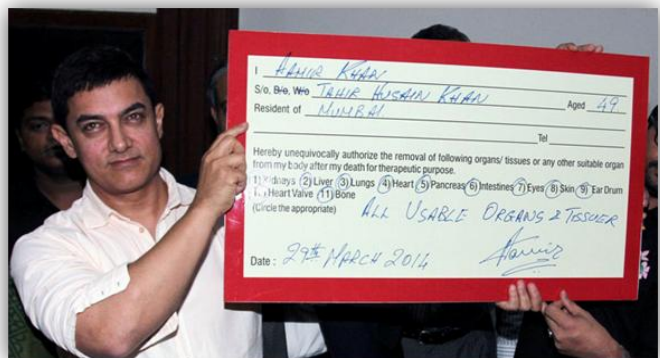 I AAMIR KHAN
S/o, D/o, W/o TAHIR HUSAIN KHAN Aged 49
Resident of MUMBAI
Tel
Hereby unequivocally authorize the removal of following organs/ tissues or any other suitable organ
from my body after my death for therapeutic purpose.
1) Kidneys 2) Liver 3) Lungs 4) Heart 5) Pancreas 6) Intestines 7) Eyes 8) Skin 9) Ear Drum
Heart Valve 11) Bone
(Circle the appropriate) ALL USABLE ORGANS & TISSUER
Date : 29th MARCH 2014 Aamir